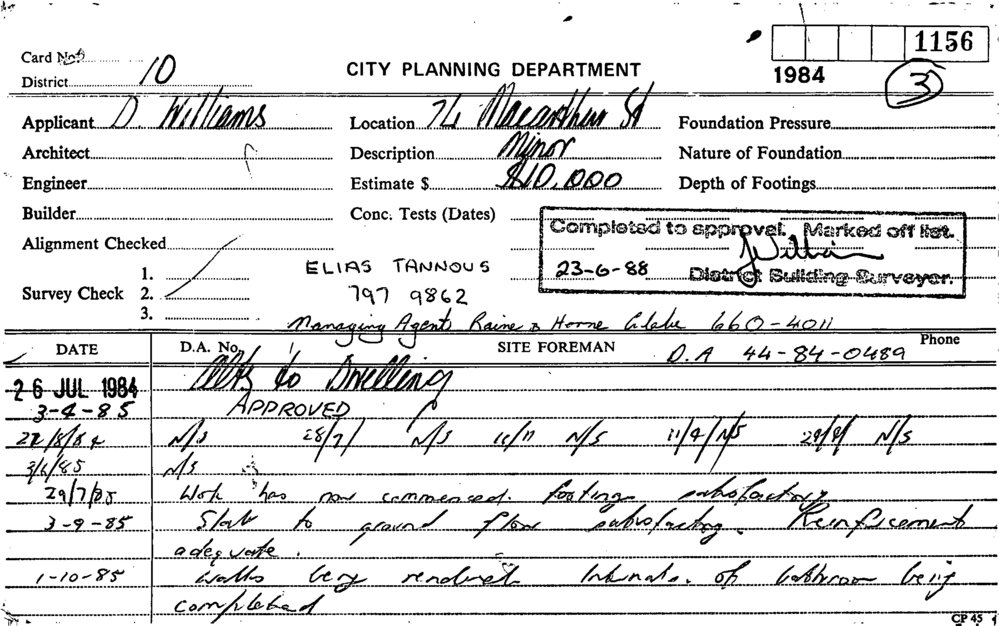 1156
Card No.
District 10
CITY PLANNING DEPARTMENT
1984
3
Applicant D Williams
Location 74 Macarthur St
Foundation Pressure
Architect
Description Minor
Nature of Foundation
Engineer
Estimate $ $10,000
Depth of Footings
Builder
Conc. Tests (Dates)
Completed to approval. Marked off list.
Alignment Checked
23-6-88 District Building Surveyor.
1.
ELIAS TANNOUS
Survey Check 2.
797 9862
3.
Managing Agents Raine & Horne Glebe 660-4011
DATE D.A. No. SITE FOREMAN Phone
D.A 44-84-0489
26 JUL 1984 Alts to Dwelling
3-4-85 APPROVED
22/8/84 N/S 28/7/ N/S 16/11 N/S 11/4/ N/S 29/4/ N/S
3/6/85 N/S
29/7/85 Work has now commenced. footings satisfactory
3-9-85 Slab to ground floor satisfactory. Reinforcement
adequate.
1-10-85 walls being rendered. Internals of bathroom being
completed
CP 45